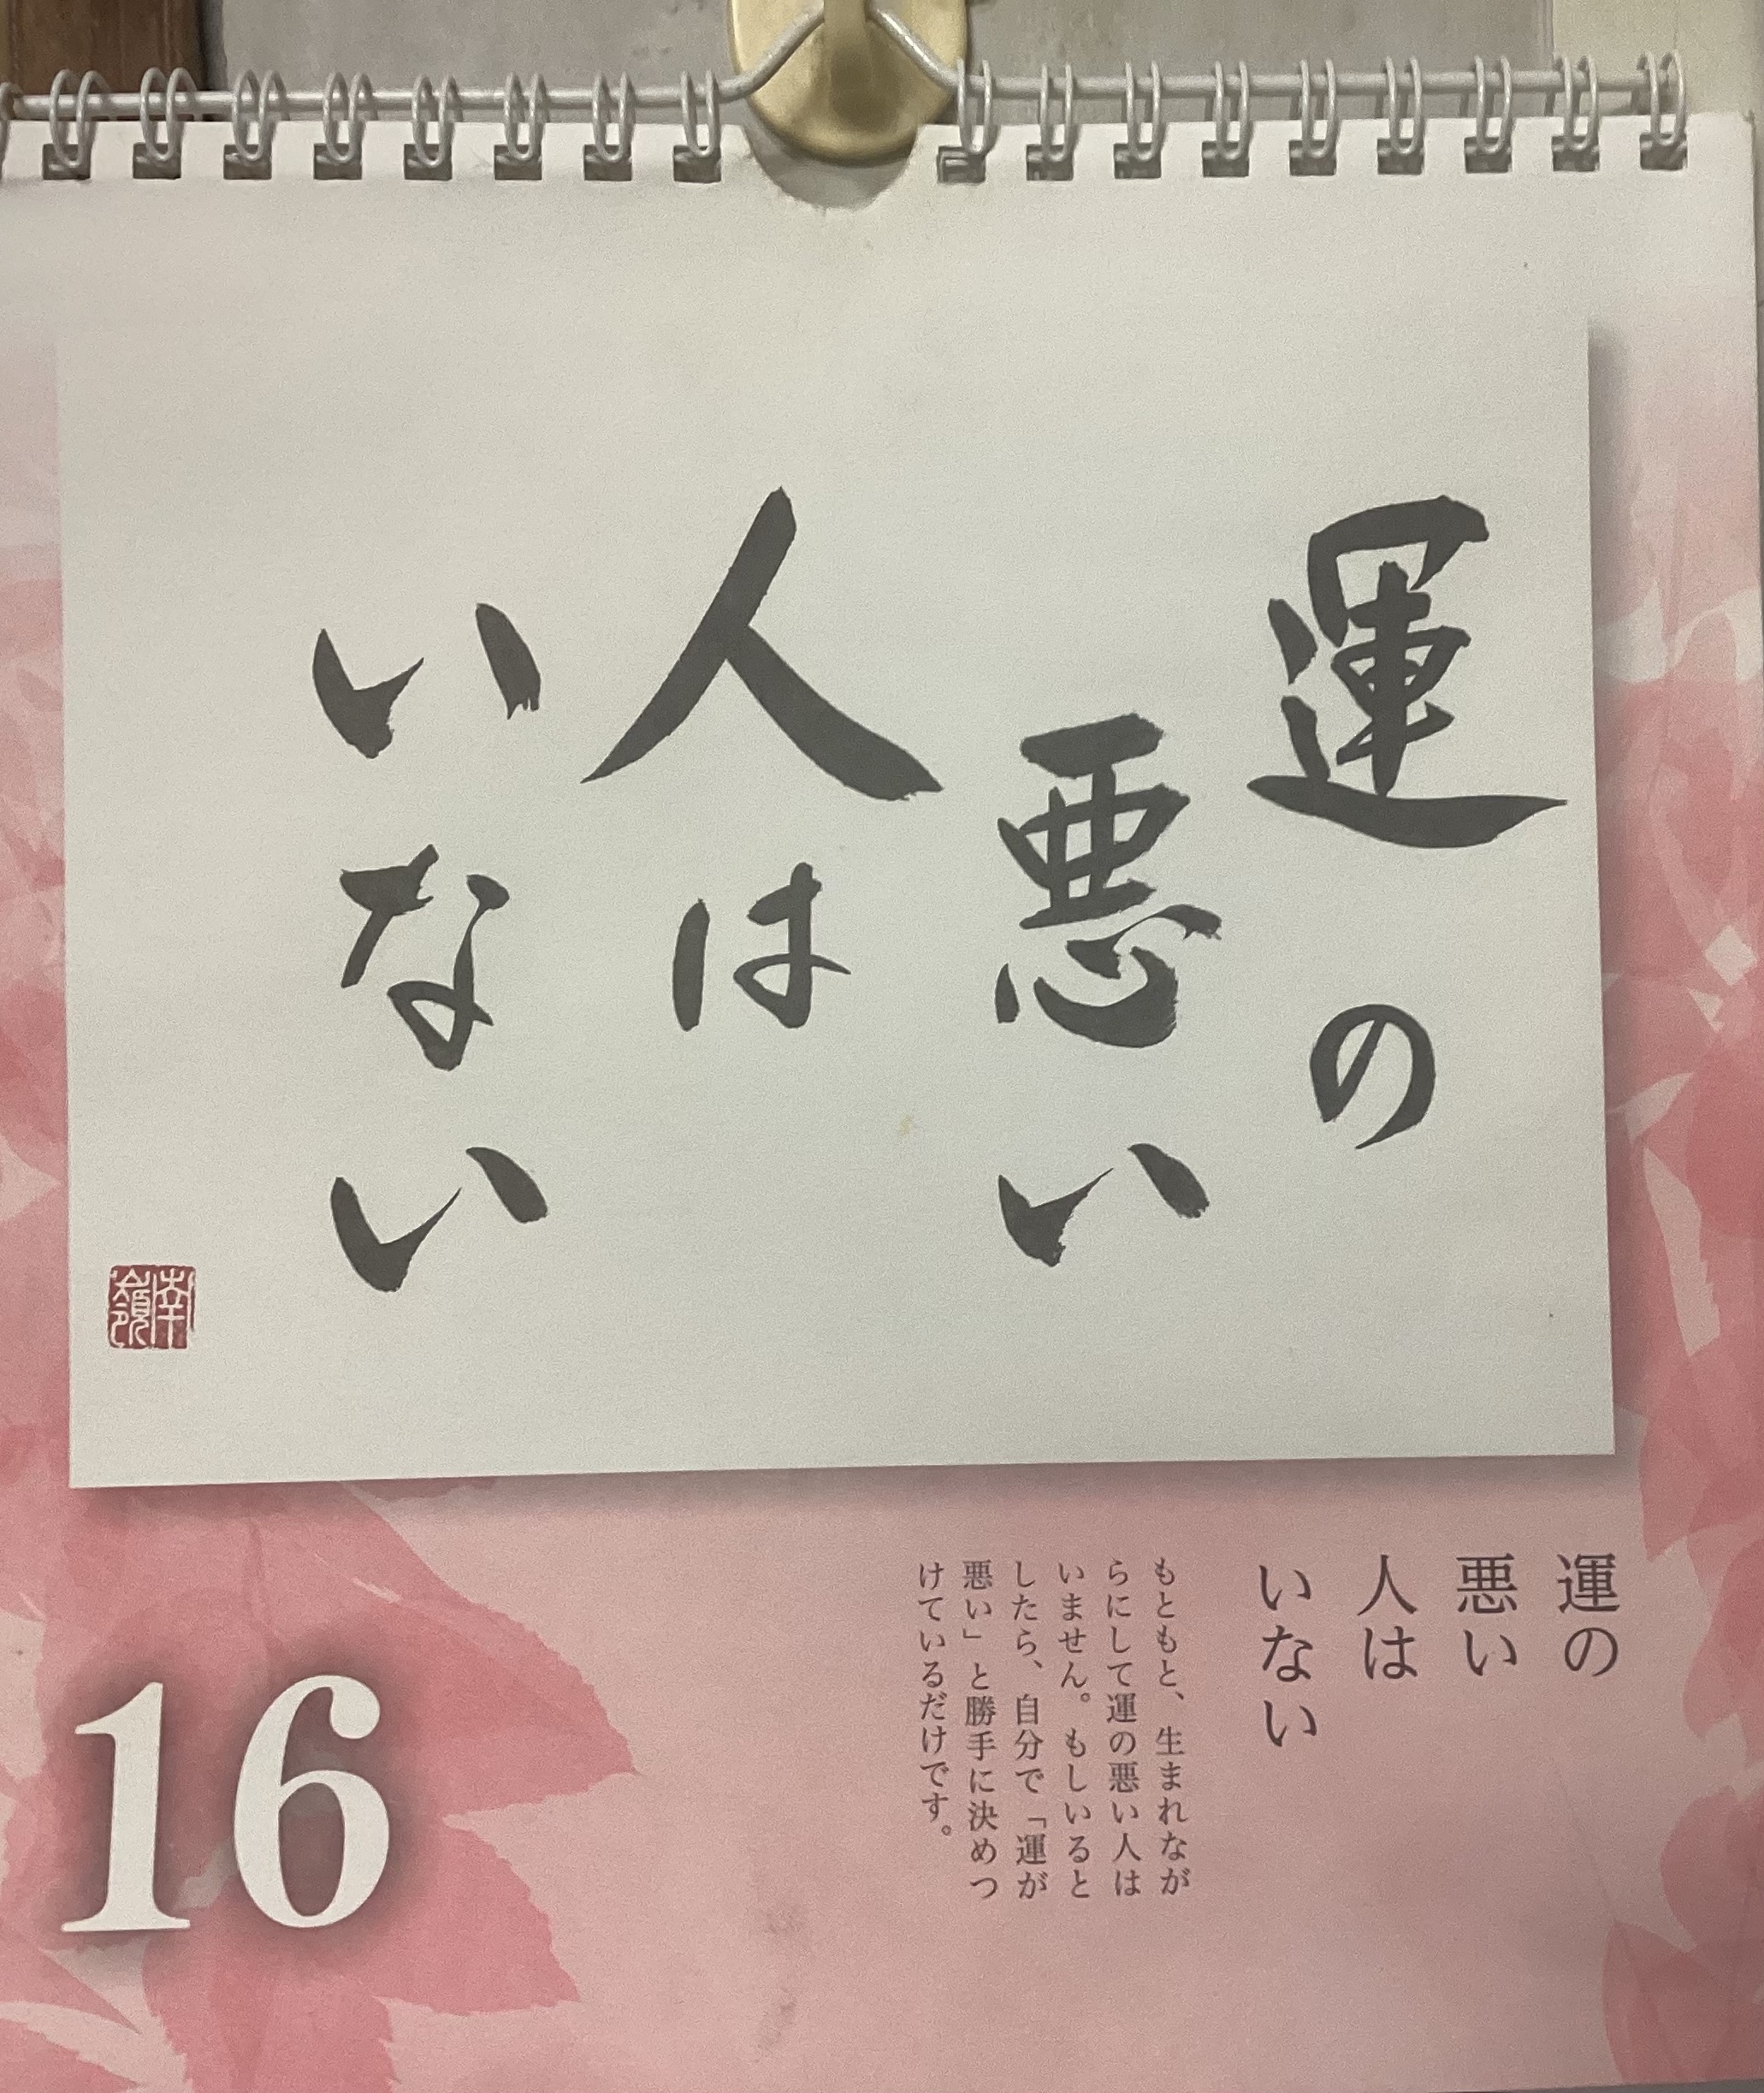 運の
悪い
人は
いない
南嶺
運の
悪い
人は
いない
もともと、生まれなが
らにして運の悪い人は
いません。もしいると
したら、自分で「運が
悪い」と勝手に決めつ
けているだけです。
16